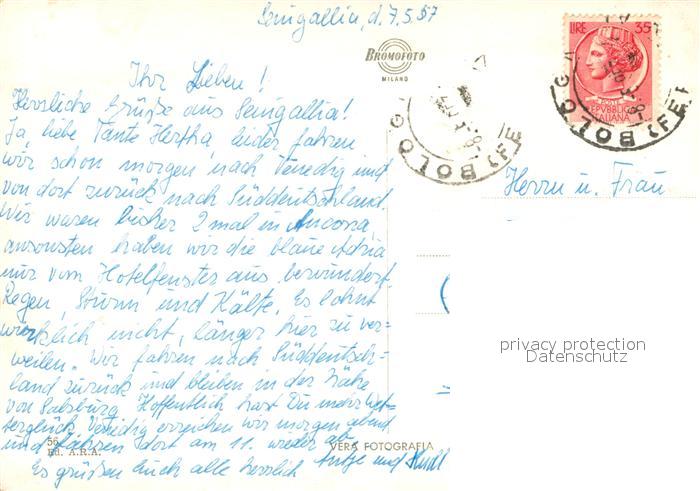 Senigallia, d. 7.5.57
BROMOFOTO
MILANO
LIRE 35
REPVBBLICA
ITALIANA
BOLOGNA
BOLOGNA
Ihr Lieben!
Herzliche Grüße aus Senigallia!
Ja, liebe Tante Hertha, leider fahren
wir schon morgen nach Venedig und
von dort zurück nach Süddeutschland.
Wir waren bisher 2 mal in Ancona,
ansonsten haben wir die blaue Adria
nur vom Hotelfenster aus bewundert.
Regen, Sturm und Kälte. Es lohnt
wirklich nicht, länger hier zu ver-
weilen. Wir fahren nach Süddeutsch-
land zurück und bleiben in der Nähe
von Salzburg. Hoffentlich hast Du mehr Wet-
terglück. Venedig erreichen wir morgen abend
und fahren dort am 11. wieder ab.
Es grüßen Euch alle herzlich Antje und
Herrn u. Frau
privacy protection
Datenschutz
56
Ed. A.R.A.
VERA FOTOGRAFIA